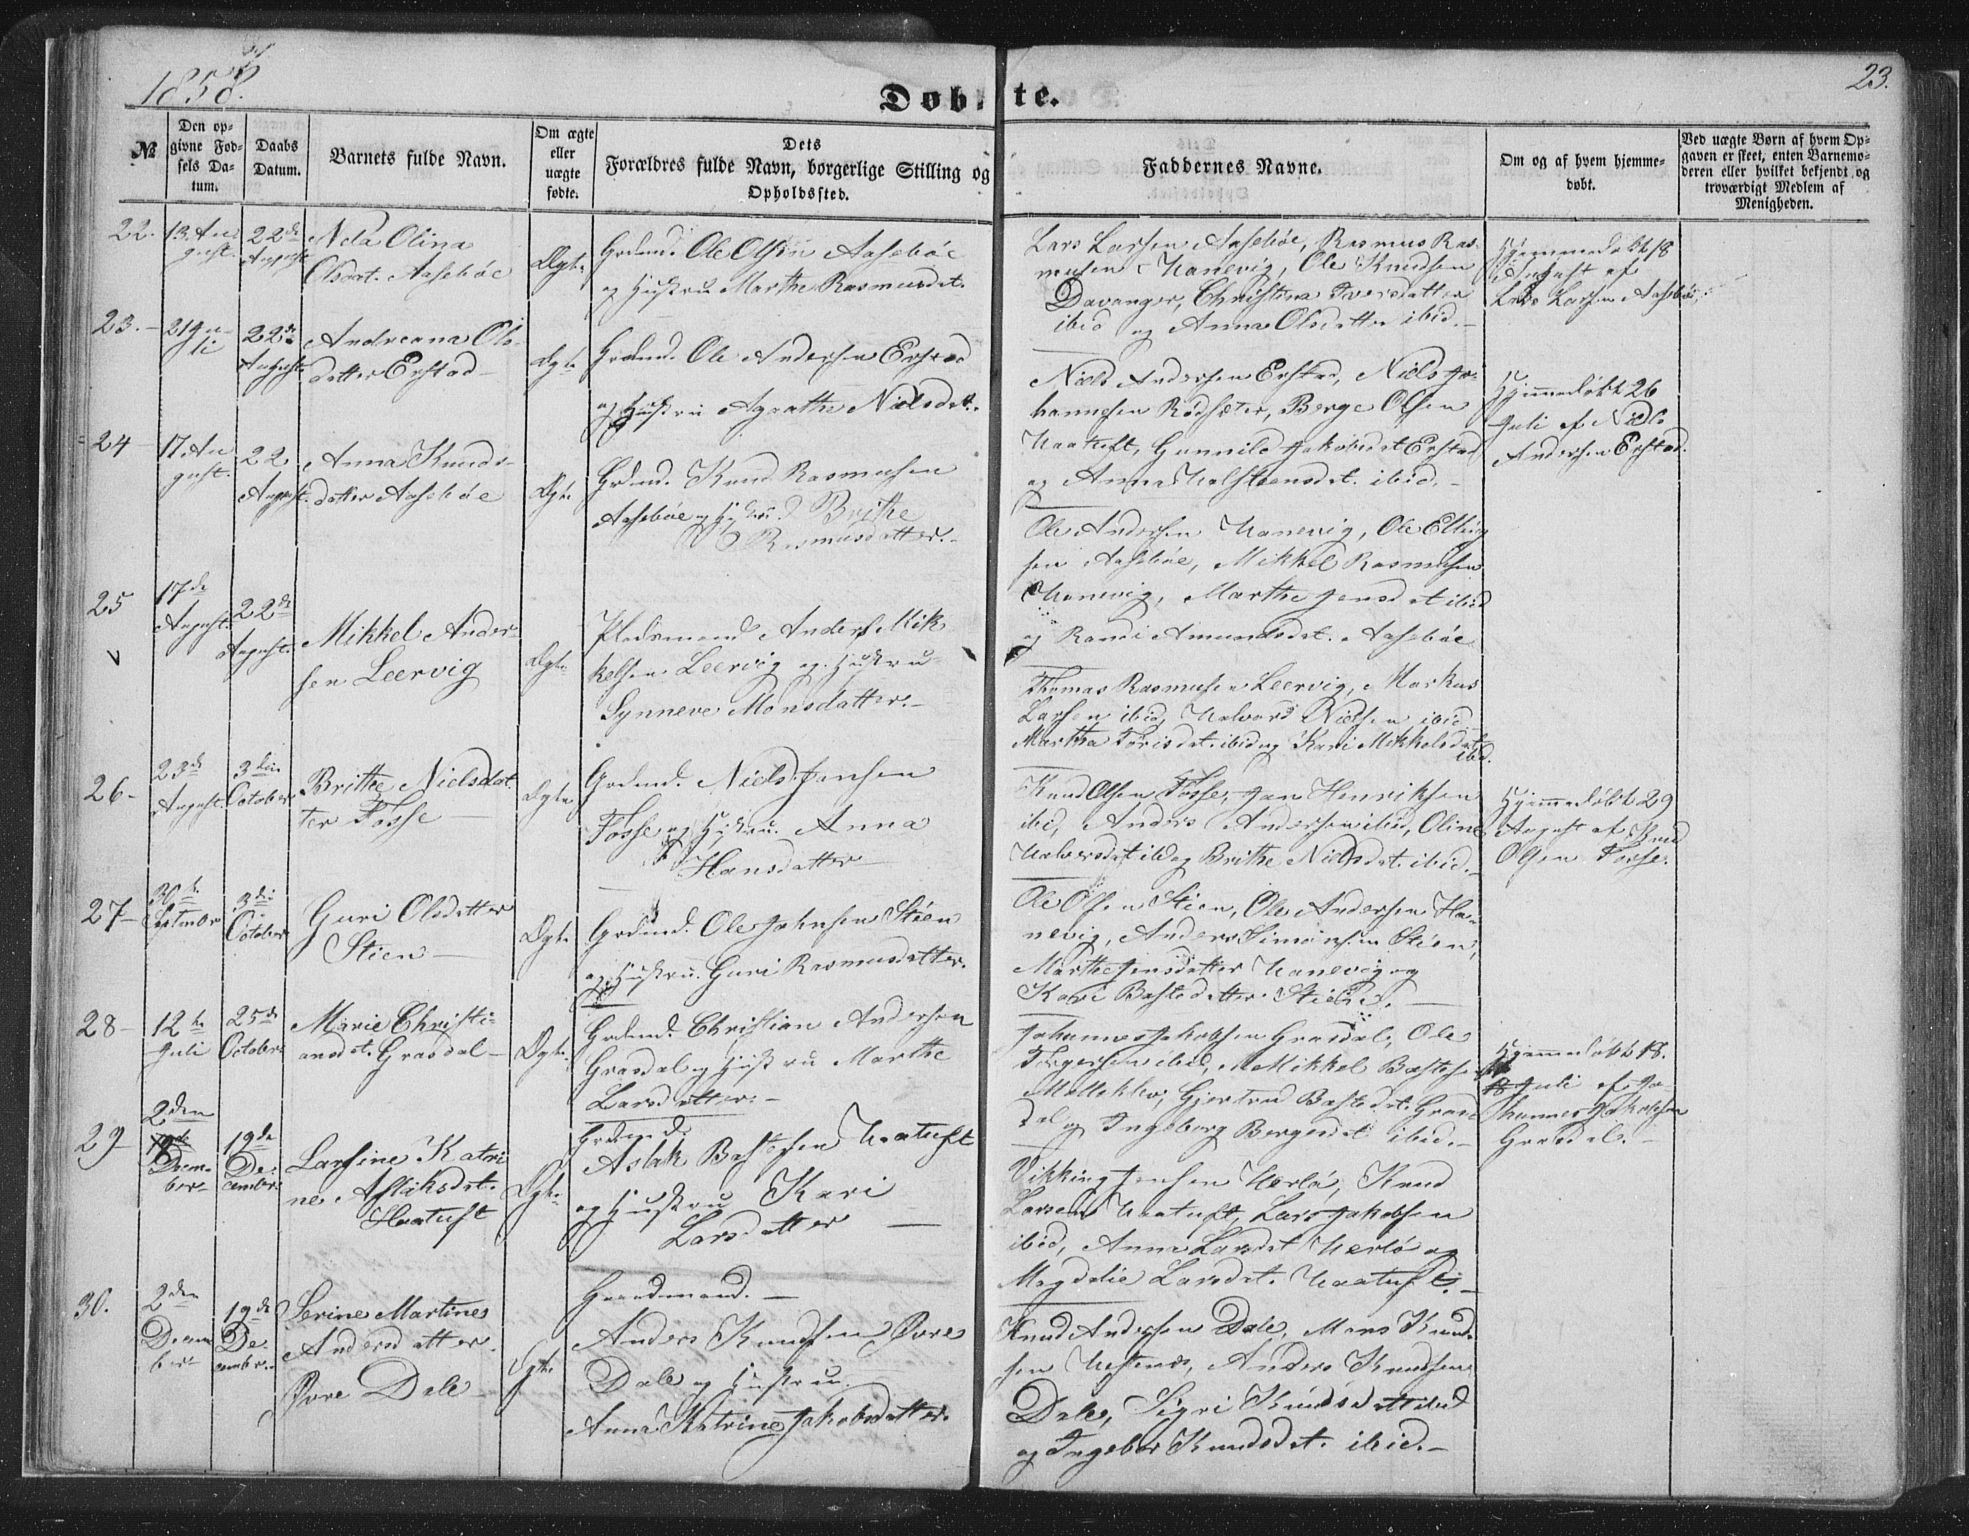 1858.
Døbte.
23.
№
Den op-
givne Fød-
sels Da-
tum.
Daabs
Datum.
Barnets fulde Navn.
Om ægte
eller
uægte
fødte.
Dets
Forældres fulde Navn, borgerlige Stilling og
Opholdssted.
Faddernes Navne.
Om og af hvem hjemme-
døbt.
Ved uægte Børn af hvem Op-
gaven er skeet, enten Barnemo-
deren eller hvilket bekjendt og
troværdigt Medlem af
Menigheden.
22.
13 Au-
gust.
22de
August
Nela Olina
Olsdat. Aasebøe
Ægte
Grdmd. Ole Olsen Aasebøe
og Hustru Marthe Rasmusdt.
Lars Larsen Aasebøe, Rasmus Ras-
musen Hanevig, Ole Knudsen
Davanger, Christina Iversdatter
ibid og Anna Olsdatter ibid.
Hjemmedøbt 18
August af
Lars Larsen Aasebøe.
23.
21 Ju-
li
22de
August.
Andreana Ols-
datter Erstad
Ægte
Grdmd. Ole Andersen Erstad
og Hustru Agathe Nielsdt.
Niels Andersen Erstad, Niels Jo-
hannesen Rødseter, Berge Olsen
Haatuft, Gunnild Jakobsdt Erstad
og Anna Halsteensdt. ibid.
Hjemmedøbt 26
Juli af Niels
Andersen Erstad.
24
17 Au-
gust.
22
August.
Anna Knuds-
datter Aasebøe
Ægte
Grdmd. Knud Rasmusen
Aasebøe og Hustru Brithe
Rasmusdatter.
Ole Andersen Hanevig, Ole Elling
sen Aasebøe, Mikkel Rasmusen
Hanevig, Marthe Jensdt ibid
og Randi Amundsdt. Aasebøe
25
17de
August.
22de
August.
Mikkel Ander-
sen Leervig
Ægte
Pladsmand Anders Mik
kelsen Leervig og Hustru
Synneve Monsdatter.
Thomas Rasmusen Leervig, Markus
Larsen ibid, Halvard Nielsen ibid
Martha Torisdt. ibid og Kari Mikkelsdt
ibid.
26
23de
August.
3die
October
Brithe Nielsdat
ter Fosse
Ægte
Grdmd. Niels Jansen
Fosse og Hustru Anna
Hansdatter
Knud Olsen Fosse, Jan Henriksen
ibid, Anders Andersen ibid, Oline
Halversdt ibid og Brithe Nielsdt. ibid.
Hjemmedøbt 29
August af Knud
Olsen Fosse.
27
30te
Septmbr
3die
October
Guri Olsdatter
Stien
Ægte
Grdmd. Ole Johnsen Stien
og Hustru Guri Rasmusdatter.
Ole Olsen Stien, Ole Andersen Ha-
nevig, Anders Simonsen Stien,
Marthe Jensdatter Hanevig og
Kari Bastedatter Stien.
28
12te
Juli
25de
October
Marie Christi-
ansdt. Grasdal
Ægte
Grdmd. Christian Andersen
Grasdal og Hustru Marthe
Larsdatter.
Johannes Jakobsen Grasdal, Ole
Torgersen ibid, Mikkel Bastesen
Møllekleiv, Gjertrud Bastedt. Gras
dal og Ingeborg Bergesdt ibid.
Hjemmedøbt 18.
Juli af Jo-
hannes Jakobsen
Grasdal.
29
2den
Decem-
ber
19de
De-
cember
Larsine Katri
ne Aslaksdt.
Haatuft
Ægte
Grdmd.
Aslak Bastesen Haatuft
og Hustru Kari
Larsdatter
Vikking Jensen Herlø, Knud
Larsen Haatuft, Lars Jakobsen
ibid, Anna Larsdt Herlø og
Magdalie Larsdt. Haatuft.
30.
2den
Decem
ber
19de
De-
cember.
Serine Martines
Andersdatter
Øvre Dale
Ægte
Gaardmand.
Anders Knudsen Øvre
Dale og Hustru
Anna Katrine Jakobsdatter.
Knud Andersen Dale, Mons Knud-
sen Hestenes, Anders Knudsen
Dale, Sigri Knudsdatt ibid
og Ingebor Knudsdt. ibid.